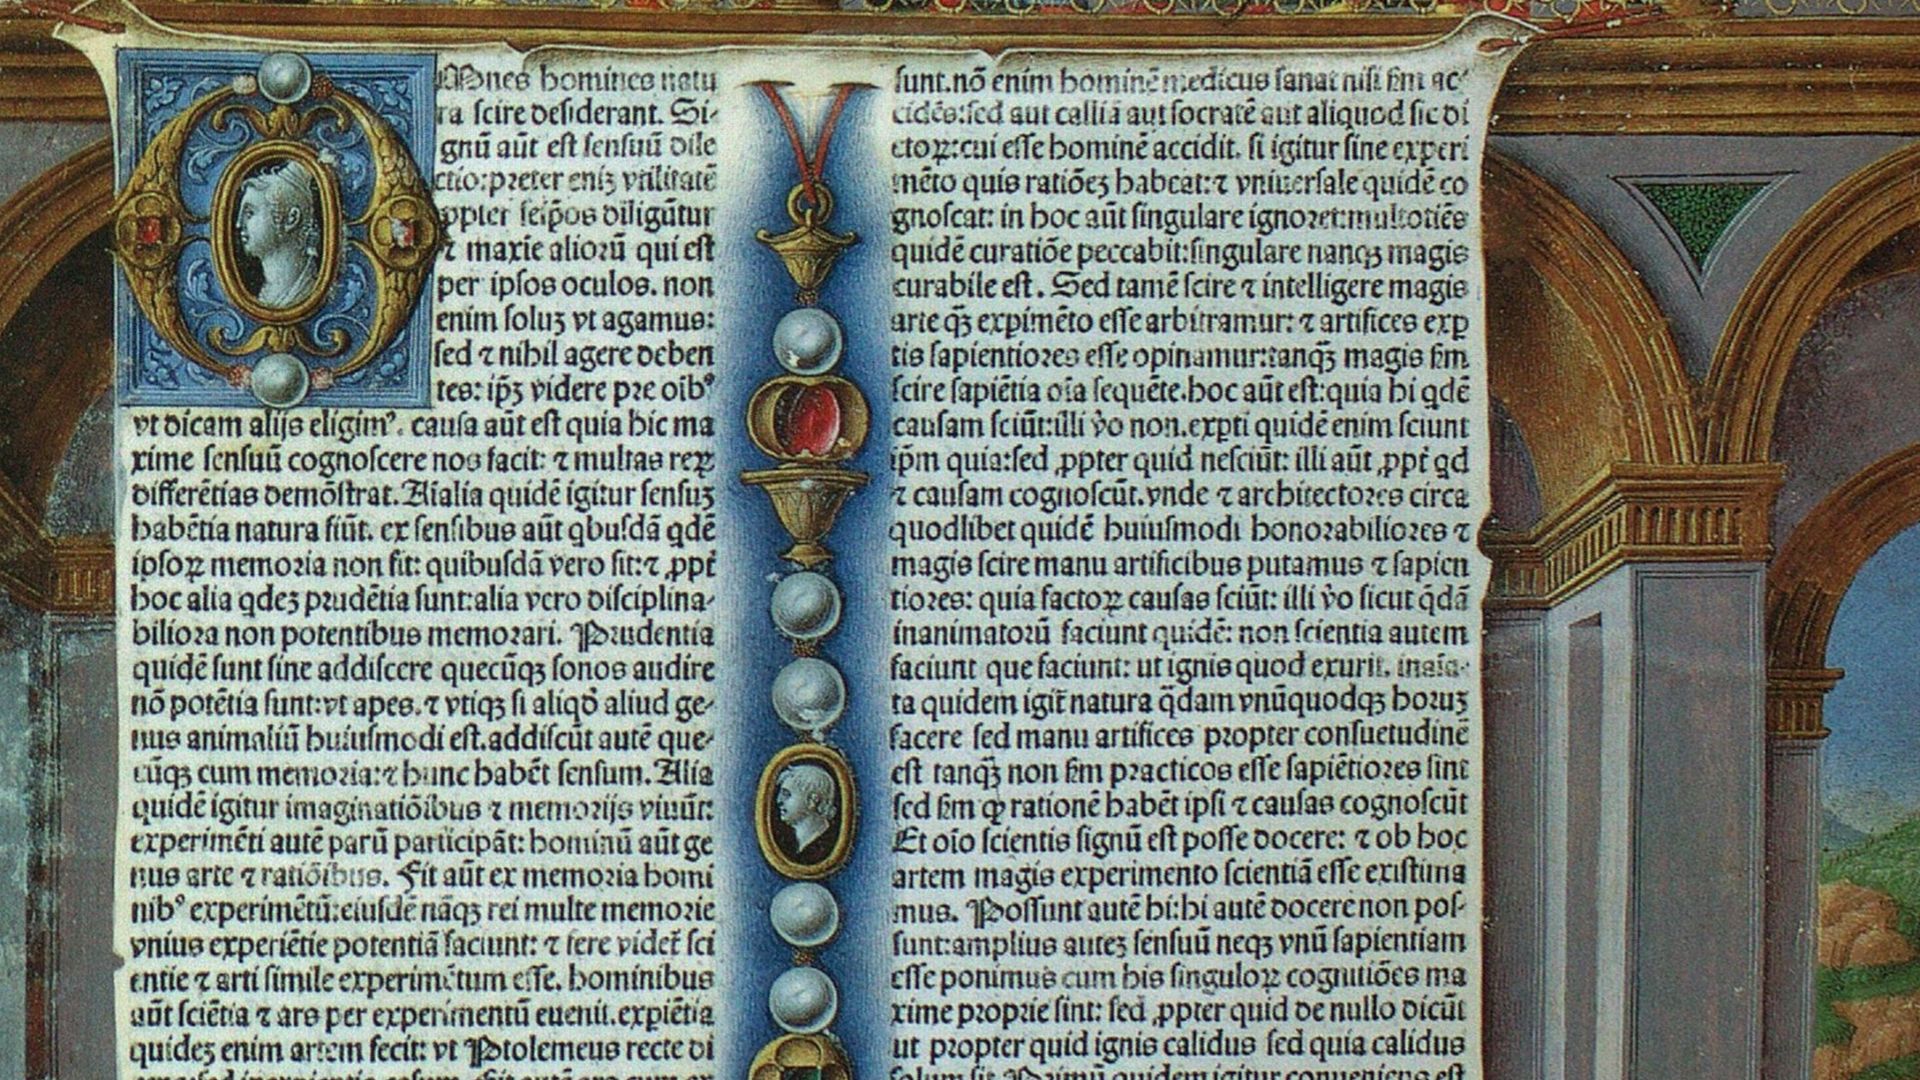 OMnes homines natu
ra scire desiderant. Si-
gnū aūt est sensuū dile
ctio:preter eniꝫ vtilitatē
ꝓpter seip̄os diligūtur
⁊ maxīe aliorū qui est
per ipsos oculos. non
enim soluꝫ vt agamus:
sed ⁊ nihil agere deben
tes: ip̄ꝫ videre pre oibꝰ
vt dicam alijs eligimꝰ. causa aūt est quia hic ma
xime sensuū cognoscere nos facit: ⁊ multas reꝝ
differētias demōstrat. Aīalia quidē igitur sensuꝫ
habētia natura fiūt. ex sensibus aūt qbusdā qdē
ipsoꝝ memoria non fit: quibusdā vero fit:⁊ ꝓpt̄
hoc alia qdeꝫ prudētia sunt:alia vero disciplina-
biliora non potentibus memorari. Prudentia
quidē sunt sine addiscere quecūqꝫ sonos audire
nō potētia sunt:vt apes.⁊ vtiqꝫ si aliqḋ aliud ge-
nus animaliū huiusmodi est.addiscūt autē que-
cūqꝫ cum memoria:⁊ hunc habēt sensum. Alia
quidē igitur imaginatiōibus ⁊ memorijs viuūt:
experimēti autē parū participāt: hominū aūt ge
nus arte ⁊ ratiōibus. Fit aūt ex memoria homi
nibꝰ experimētū:eiusdē nāqꝫ rei multe memorie
vnius experiētie potentiā faciunt: ⁊ fere videt̄ sci
entie ⁊ arti simile experimētum esse. hominibus
aūt sciētia ⁊ ars per experimentū euenit.expiētia
quideꝫ enim artem fecit: vt Ptolemeus recte di
sunt.nō enim hominē medicus sanat nisi ẜm ac-
cidēs:sed aut calliā aut socratē aut aliquod sic di
ctoꝝ:cui esse hominē accidit. si igitur sine experi
mēto quis ratiōeꝫ habeat:⁊ vniuersale quidē co
gnoscat: in hoc aūt singulare ignoret:multotiēs
quidē curatiōe peccabit:singulare nanqꝫ magis
curabile est. Sed tamē scire ⁊ intelligere magis
arte qꝫ̄ expimēto esse arbitramur: ⁊ artifices exꝑ
tis sapientiores esse opinamur:tanqꝫ̄ magis ẜm
scire sapiētia oīa sequēte.hoc aūt est:quia hi qdē
causam sciūt:illi v̊o non.exꝑti quidē enim sciunt
ip̄m quia:sed ꝓpter quid nesciūt: illi aūt ꝓpt̄ qd
⁊ causam cognoscūt.vnde ⁊ architectores circa
quodlibet quidē huiusmodi honorabiliores ⁊
magis scire manu artificibus putamus ⁊ sapien
tiores: quia factoꝝ causas sciūt: illi v̊o sicut q̄dā
inanimatorū faciunt quidē: non scientia autem
faciunt que faciunt: ut ignis quod exurit. inaīa-
ta quidem igit̄ natura q̄dam vnūquodqꝫ horuꝫ
facere sed manu artifices propter consuetudinē
est tanqꝫ̄ non ẜm practicos esse sapiētiores sint
sed ẜm ꝙ rationē habēt ipsi ⁊ causas cognoscūt
Et oīo scientis signū est posse docere: ⁊ ob hoc
artem magis experimento scientiā esse existima
mus. Possunt autē hi:hi autē docere non pos-
sunt:amplius auteꝫ sensuū neqꝫ vnū sapientiam
esse ponimus cum his singuloꝝ cognitiōes ma
xime proprie sint: sed ꝓpter quid de nullo dicūt
ut propter quid ignis calidus sed quia calidus
solum sit. Primū quidem igitur conueniens est